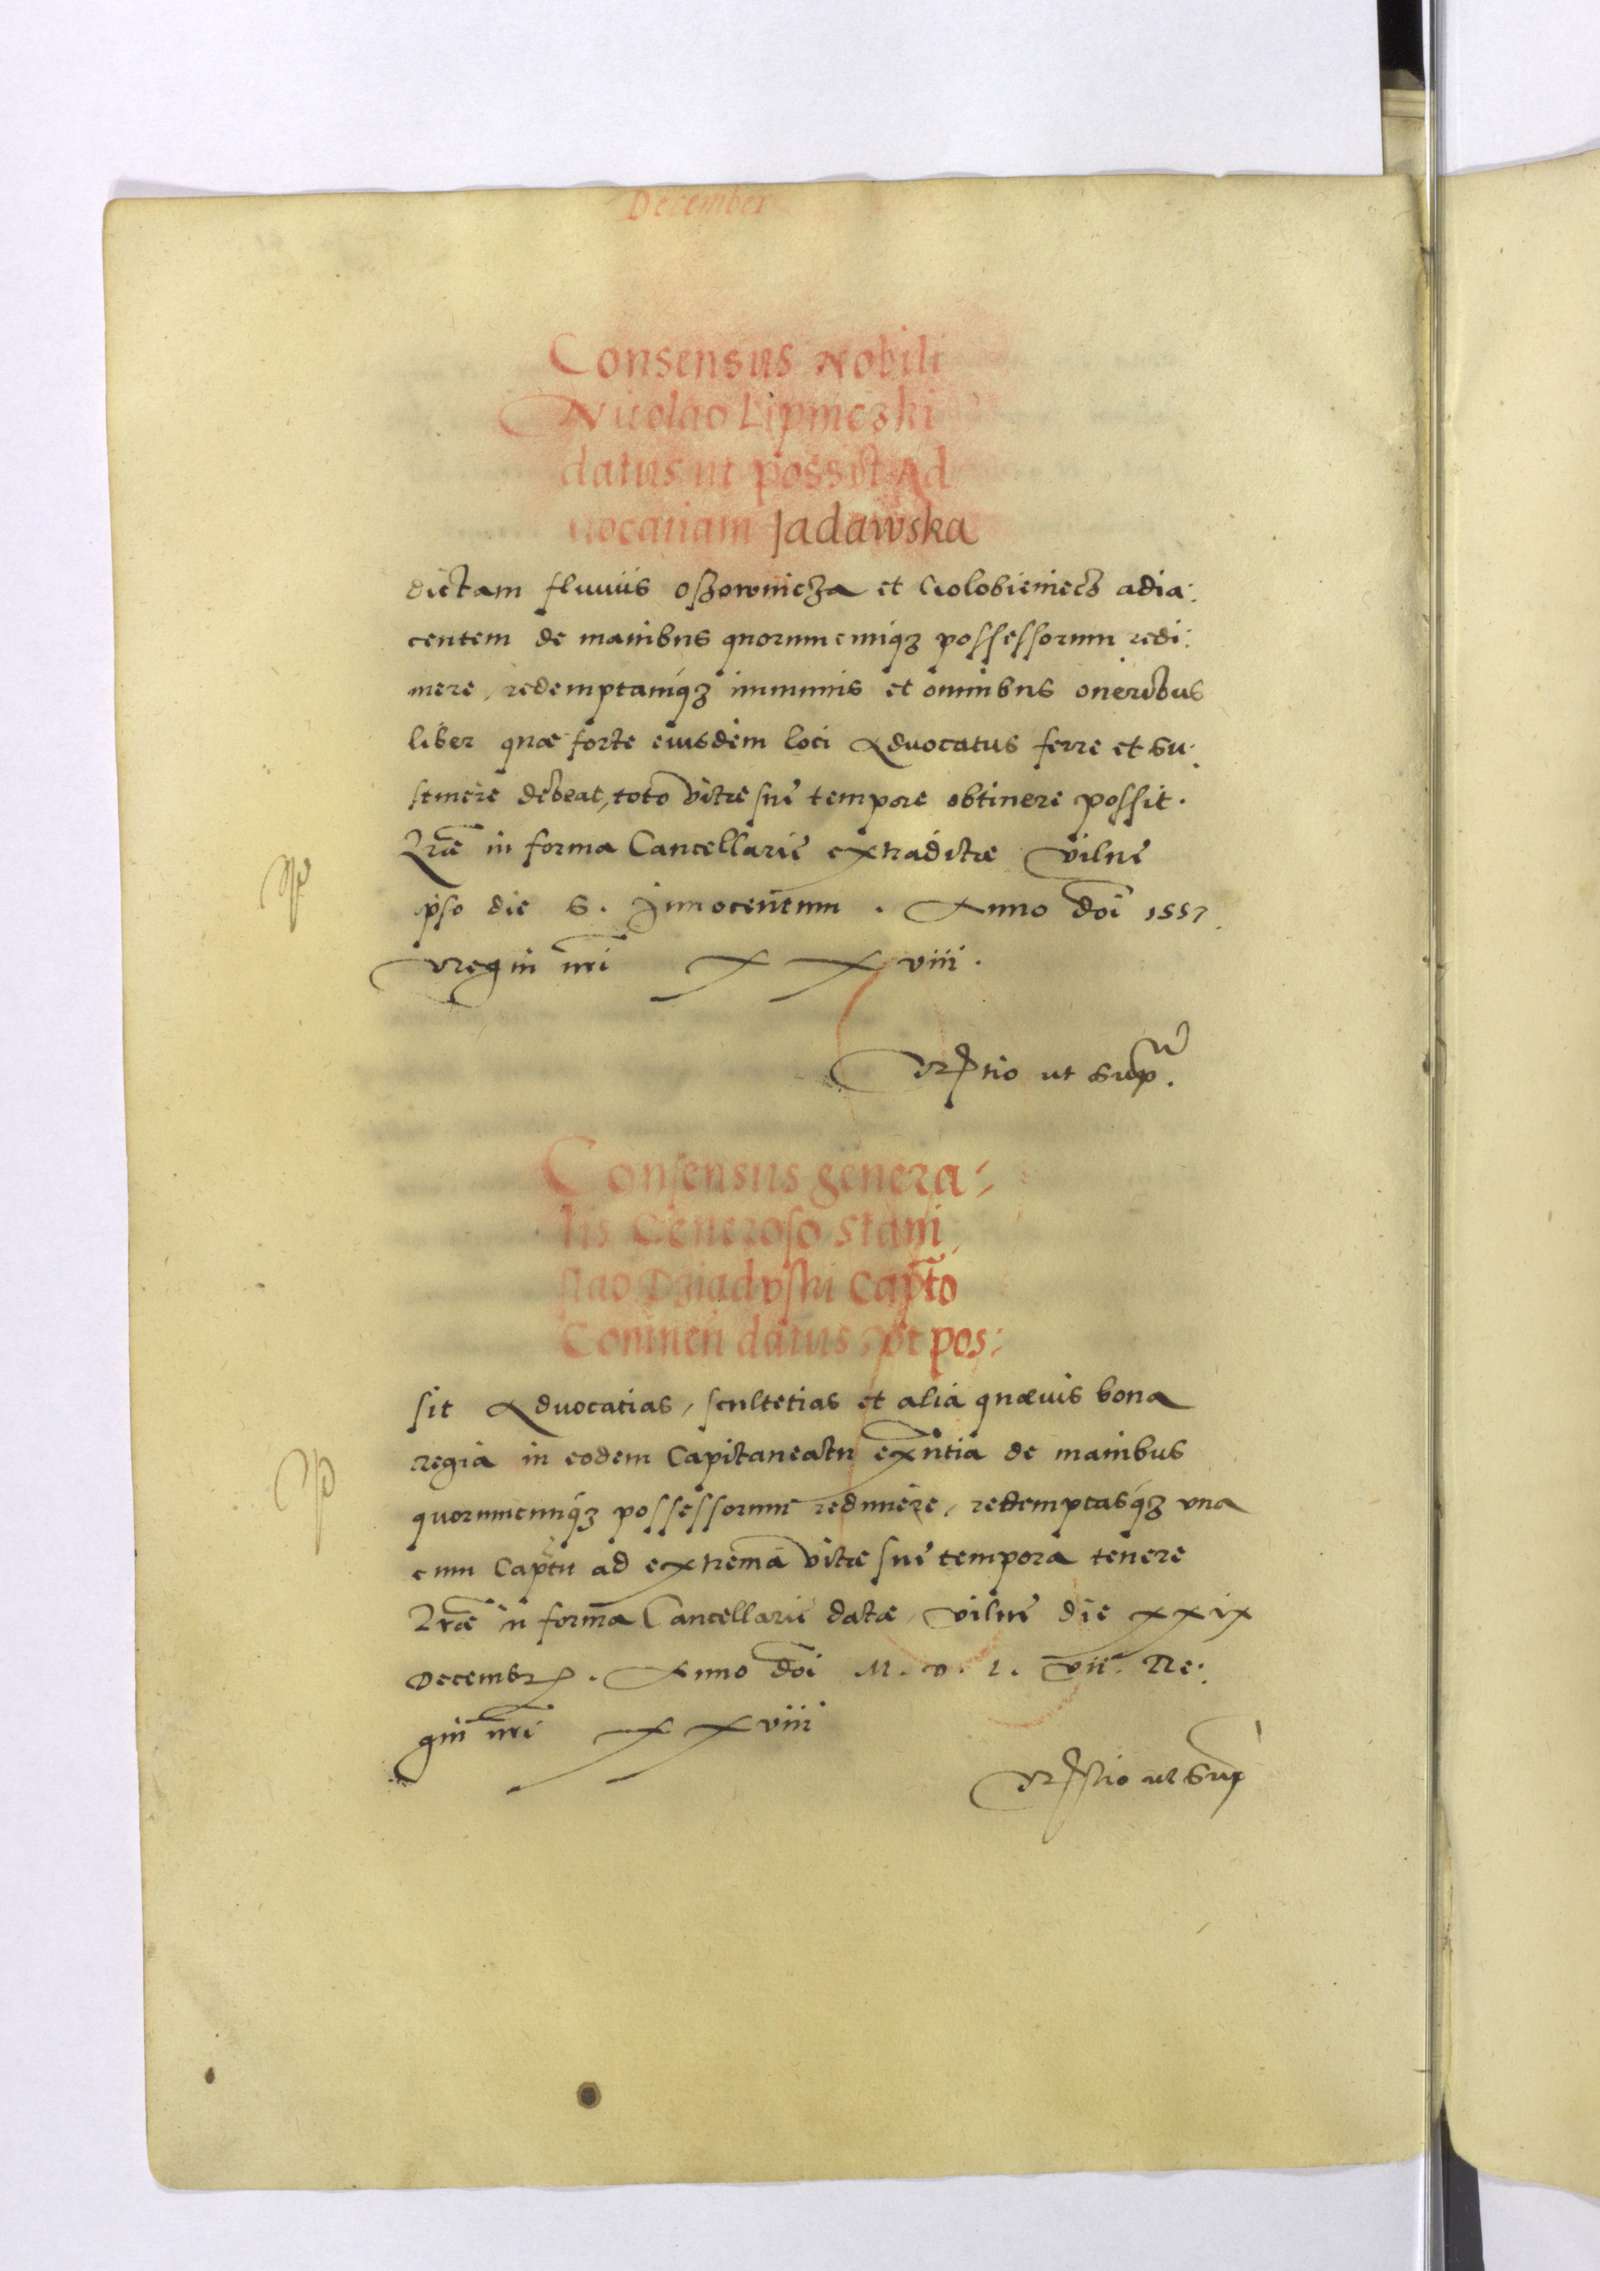 December
Consensus Nobili
Nicolao Lipniczki
datus ut possit Ad
uocatiam Jadawska
dictam fluuiis oszownicza et Golobieniecz adia:
centem de manibus quorumcunqz possessorum redi:
mere, redemptamqz immunis et omnibus oneribus
liber quae forte eiusdem loci Aduocatus ferre et su:
stinere debeat, toto vitae sue tempore obtinere possit.
Lrae in forma Cancellarie extraditae vilne
ipso die S. Innocentum. Anno doi 1557.
regni nri xxviii.
Rltio ut supra.
Consensus genera:
lis Generoso Stani
slao Dziaduski Capto
Coninen datus, vt pos:
sit Aduocatias, scultetias et alia quaeuis bona
regia in eodem Capitaneatu exntia de manibus
quorumcunqz possessorum redimere, redemptasqz vna
cum Captu ad extrema vitae sue tempora tenere
Lrae in forma Cancellarie datae, vilne die xxix
Decembr. Anno doi M.D.L.vii. Re:
gni nri xxviii
Rltio ut supra